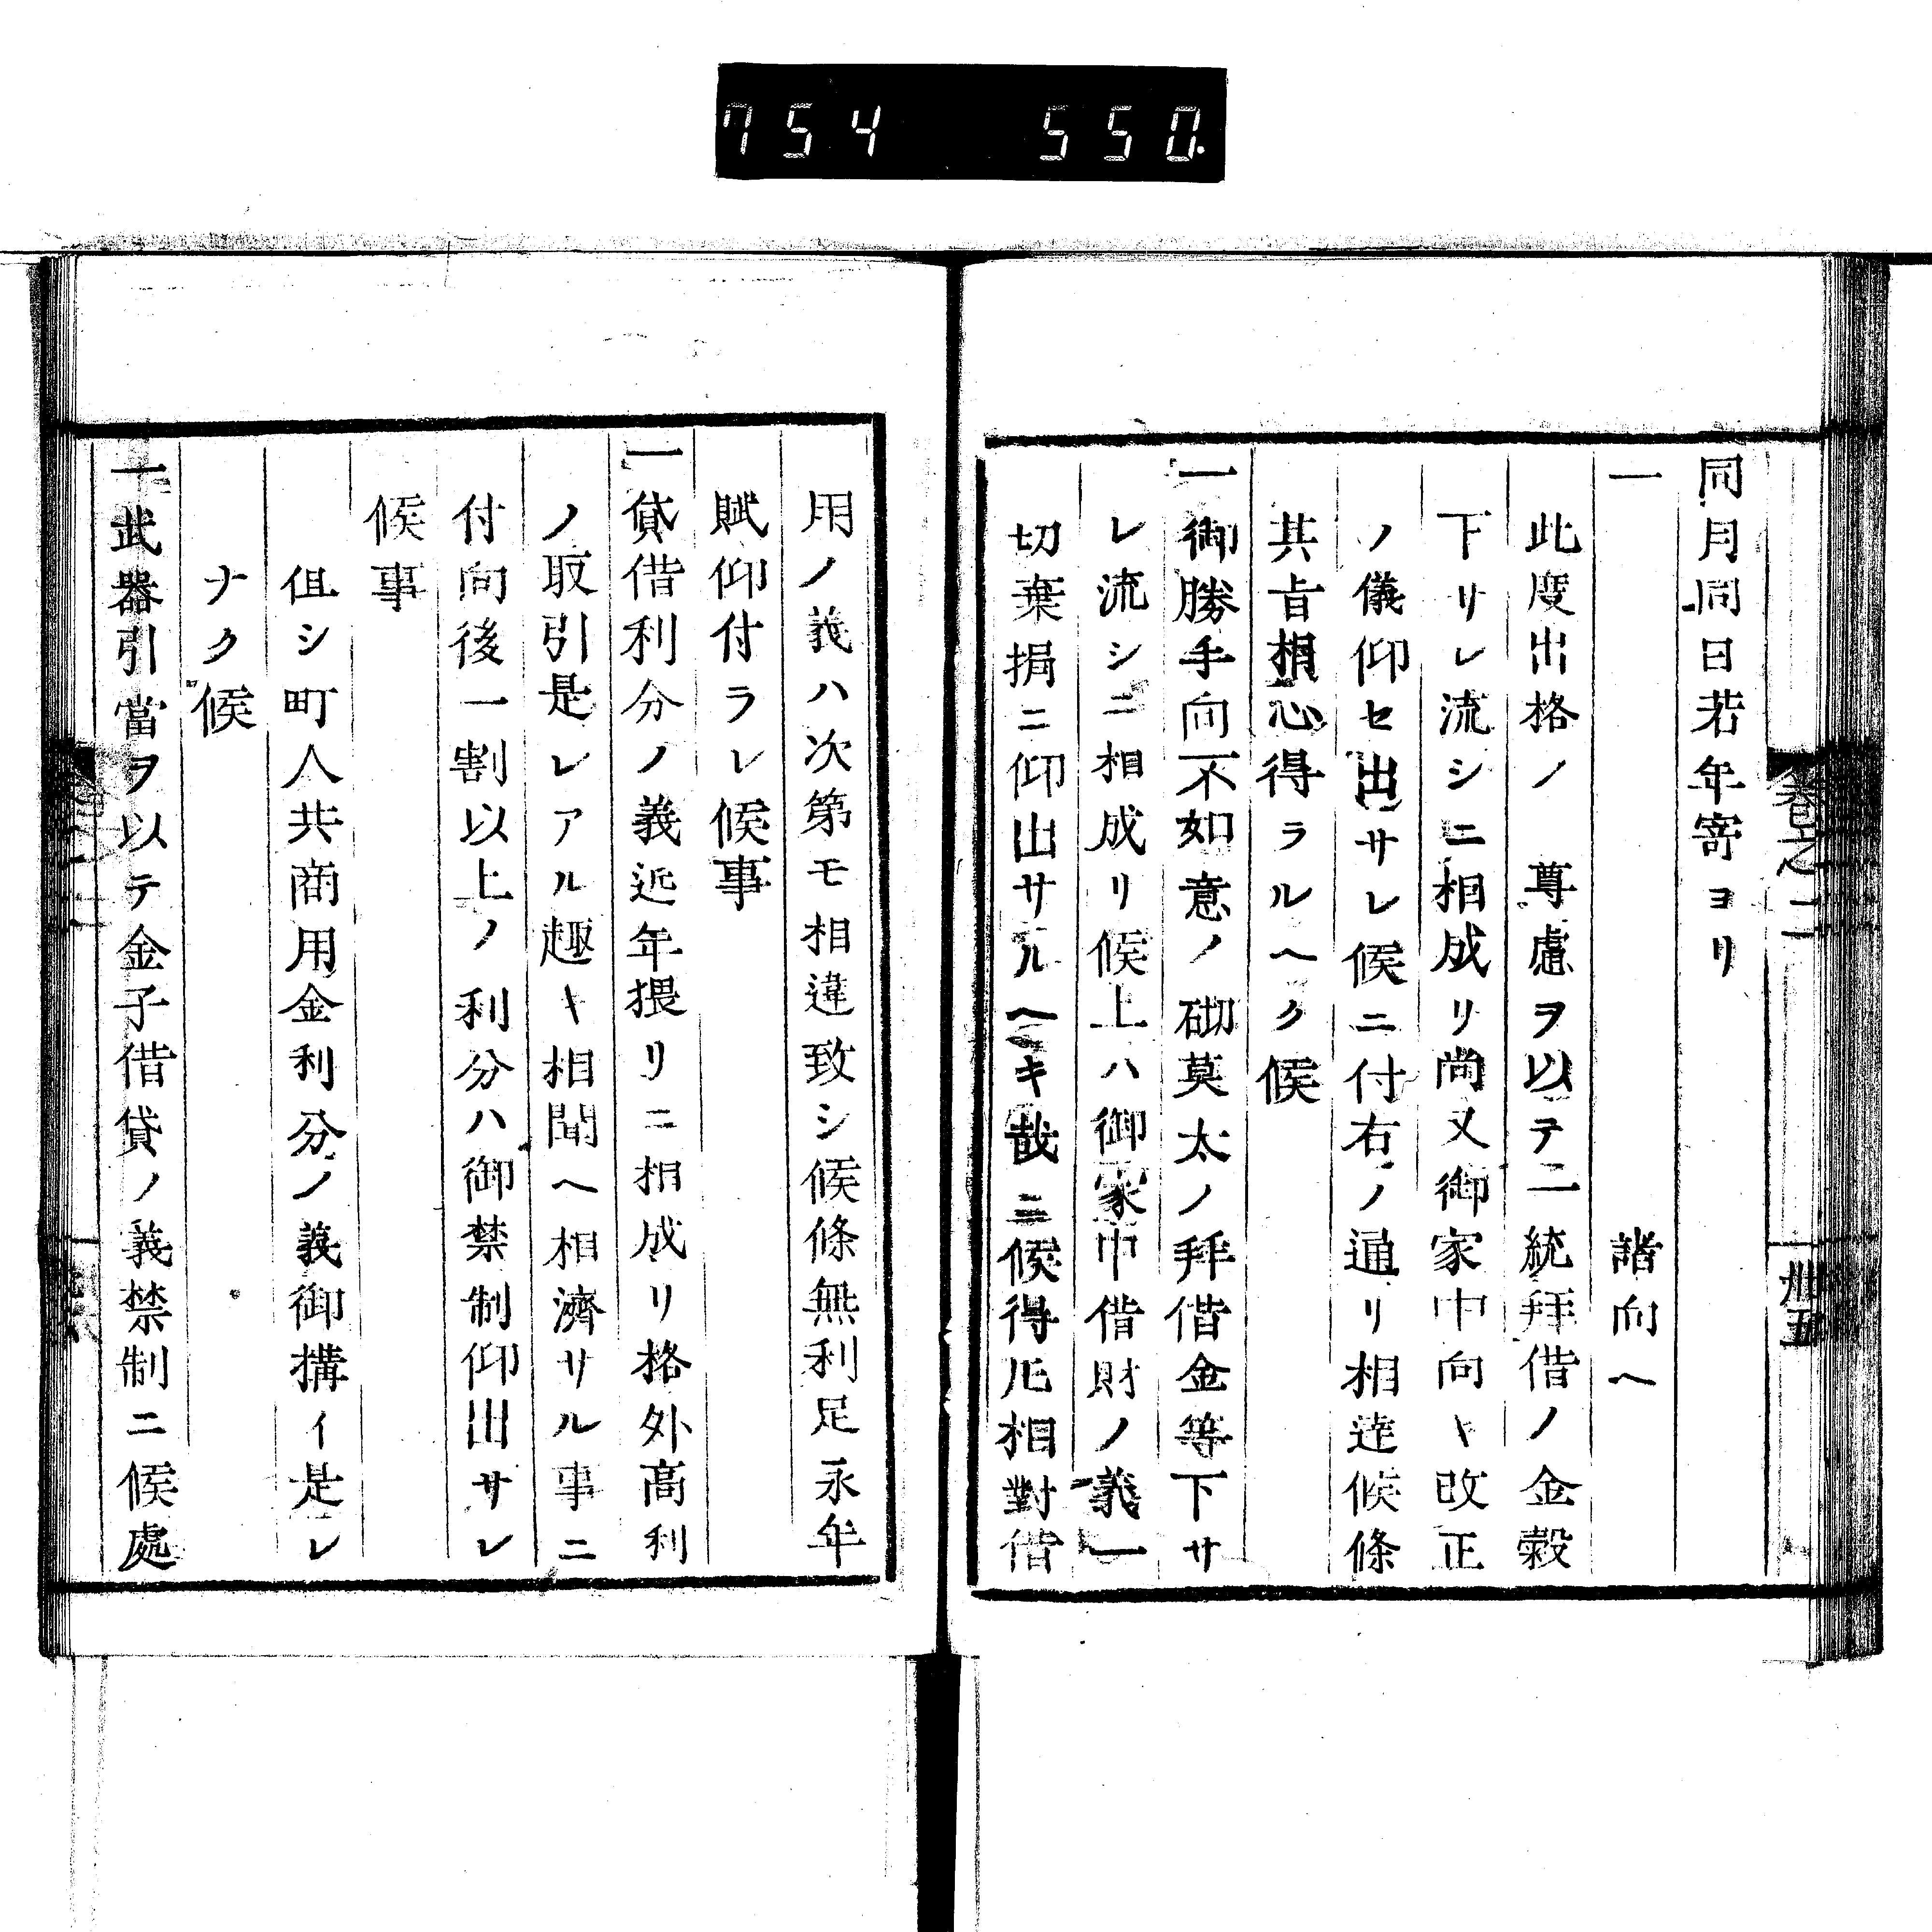 754 550.
同月同日若年寄ヨリ
一 諸向ヘ
此度出格ノ 尊慮ヲ以テ一統拜借ノ金穀
下リレ流シニ相成リ尚又御家中向キ改正
ノ儀仰セ出サレ候ニ付右ノ通リ相達候條
其旨相心得ラルヘク候
一御勝手向不如意ノ砌莫太ノ拜借金等下サ
レ流シニ相成リ候上ハ御家中借財ノ義一
切棄捐ニ仰出サルヘキ哉ニ候得𪜈相對借
用ノ義ハ次第モ相違致シ候條無利足永年
賦仰付ラレ候事
一貸借利分ノ義近年猥リニ相成リ格外高利
ノ取引是レアル趣キ相聞ヘ相濟サル事ニ
付向後一割以上ノ利分ハ御禁制仰出サレ
候事
伹シ町人共商用金利分ノ義御搆イ是レ
ナク候
一武器引當ヲ以テ金子借貸ノ義禁制ニ候處
卷之二
卅五